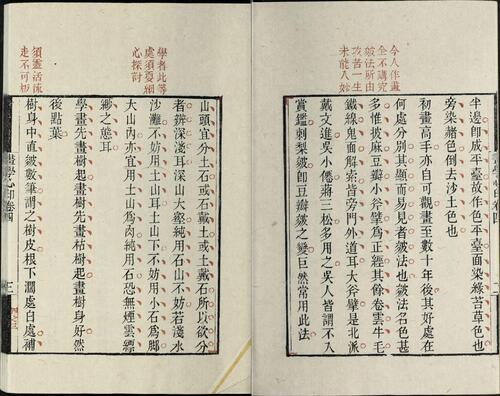 今人作畫
全不講究
皴法所由
攻苦一生
未能入妙
半邊卽成平臺故作色平臺面染綠苔草色也
旁染赭色倒去沙土色也
初畫高手亦自可觀畫至數十年後其好處在
何處分別其顯而易見者皴法也皴法名色甚
多惟披麻豆瓣小斧劈爲正經其餘卷雲牛毛
鐵線鬼面解索皆旁門外道耳大斧劈是北派
戴文進吳小僊蔣三松多用之吳人皆謂不入
賞鑑刺梨皴卽豆瓣皴之變巨然常用此法
學者此等
處須要細
心探討
須靈活流
走不可板
山頭宜分土石或石戴土或土戴石所以欲分
者辨深淺耳深山大壑純用石山不妨若淺水
沙灘不妨用土山耳土山下不妨用小石爲脚
大山內亦宜用土山爲肉純用石恐無煙雲縹
緲之態耳
學畫先畫樹起畫樹先畫枯樹起畫樹身好然
後點葉
樹身中直皴數筆謂之樹皮根下澗處白處補
畫學心印卷四
三